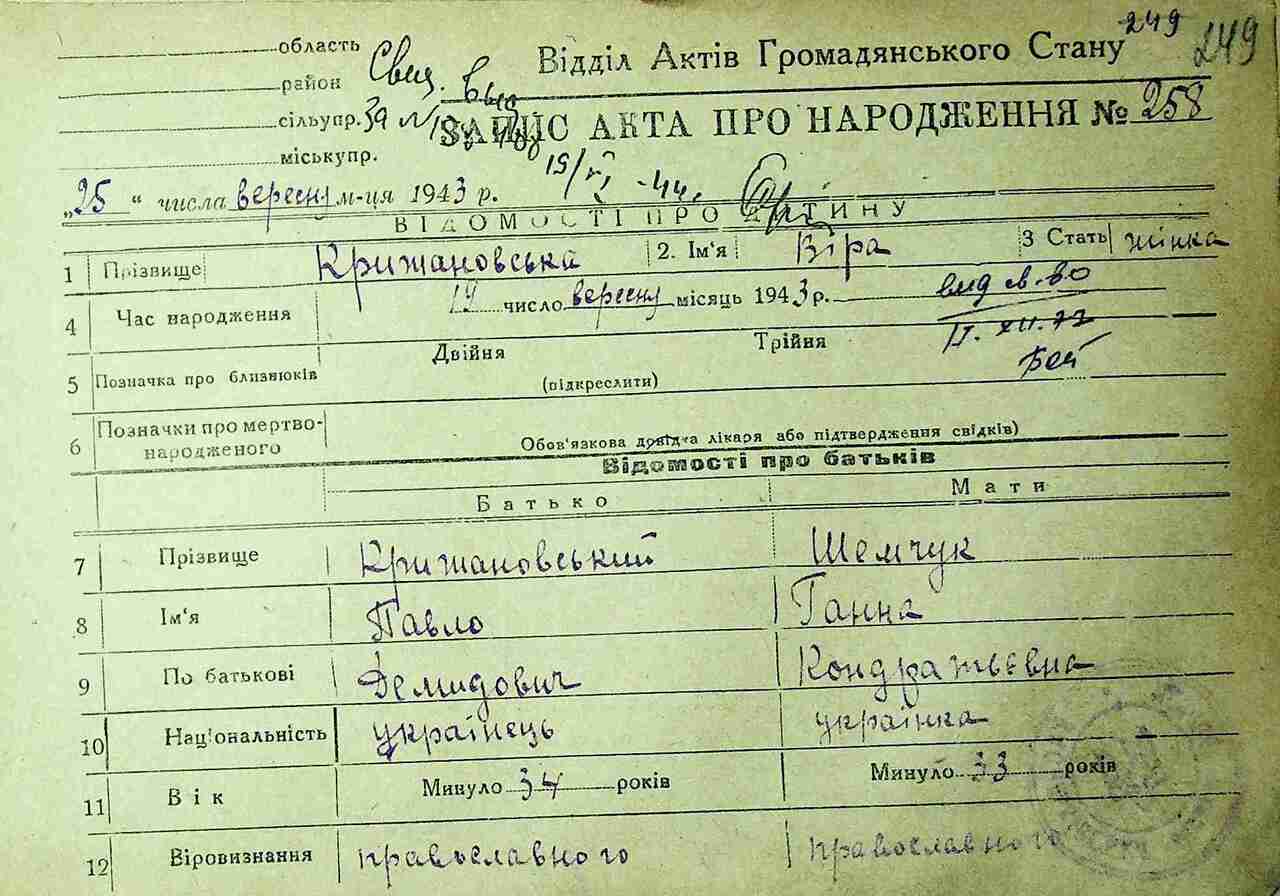 249 249
область
Відділ Актів Громадянського Стану
район Свид. выд
сільупр. за №
ЗАПИС АКТА ПРО НАРОДЖЕННЯ № 258
міськупр.
„25“ числа вересня м-ця 1943 р. 15/VI -44.
ВІДОМОСТІ ПРО ДИТИНУ
1 Прізвище Крижановська 2. Ім'я Віра 3 Стать жінка
4 Час народження число вересня місяць 1943 р. вид св-во
5 Позначка про близнюків Двійня Трійня
(підкреслити)
6 Позначки про мертво-
народженого Обов'язкова довідка лікаря або підтвердження свідків)
Відомості про батьків
Батько Мати
7 Прізвище Крижановський Шемчук
8 Ім'я Павло Ганна
9 По батькові Демидович Кондратьєвна
10 Національність українець українка
11 Вік Минуло 34 років Минуло 33 років
12 Віровизнання православного православного